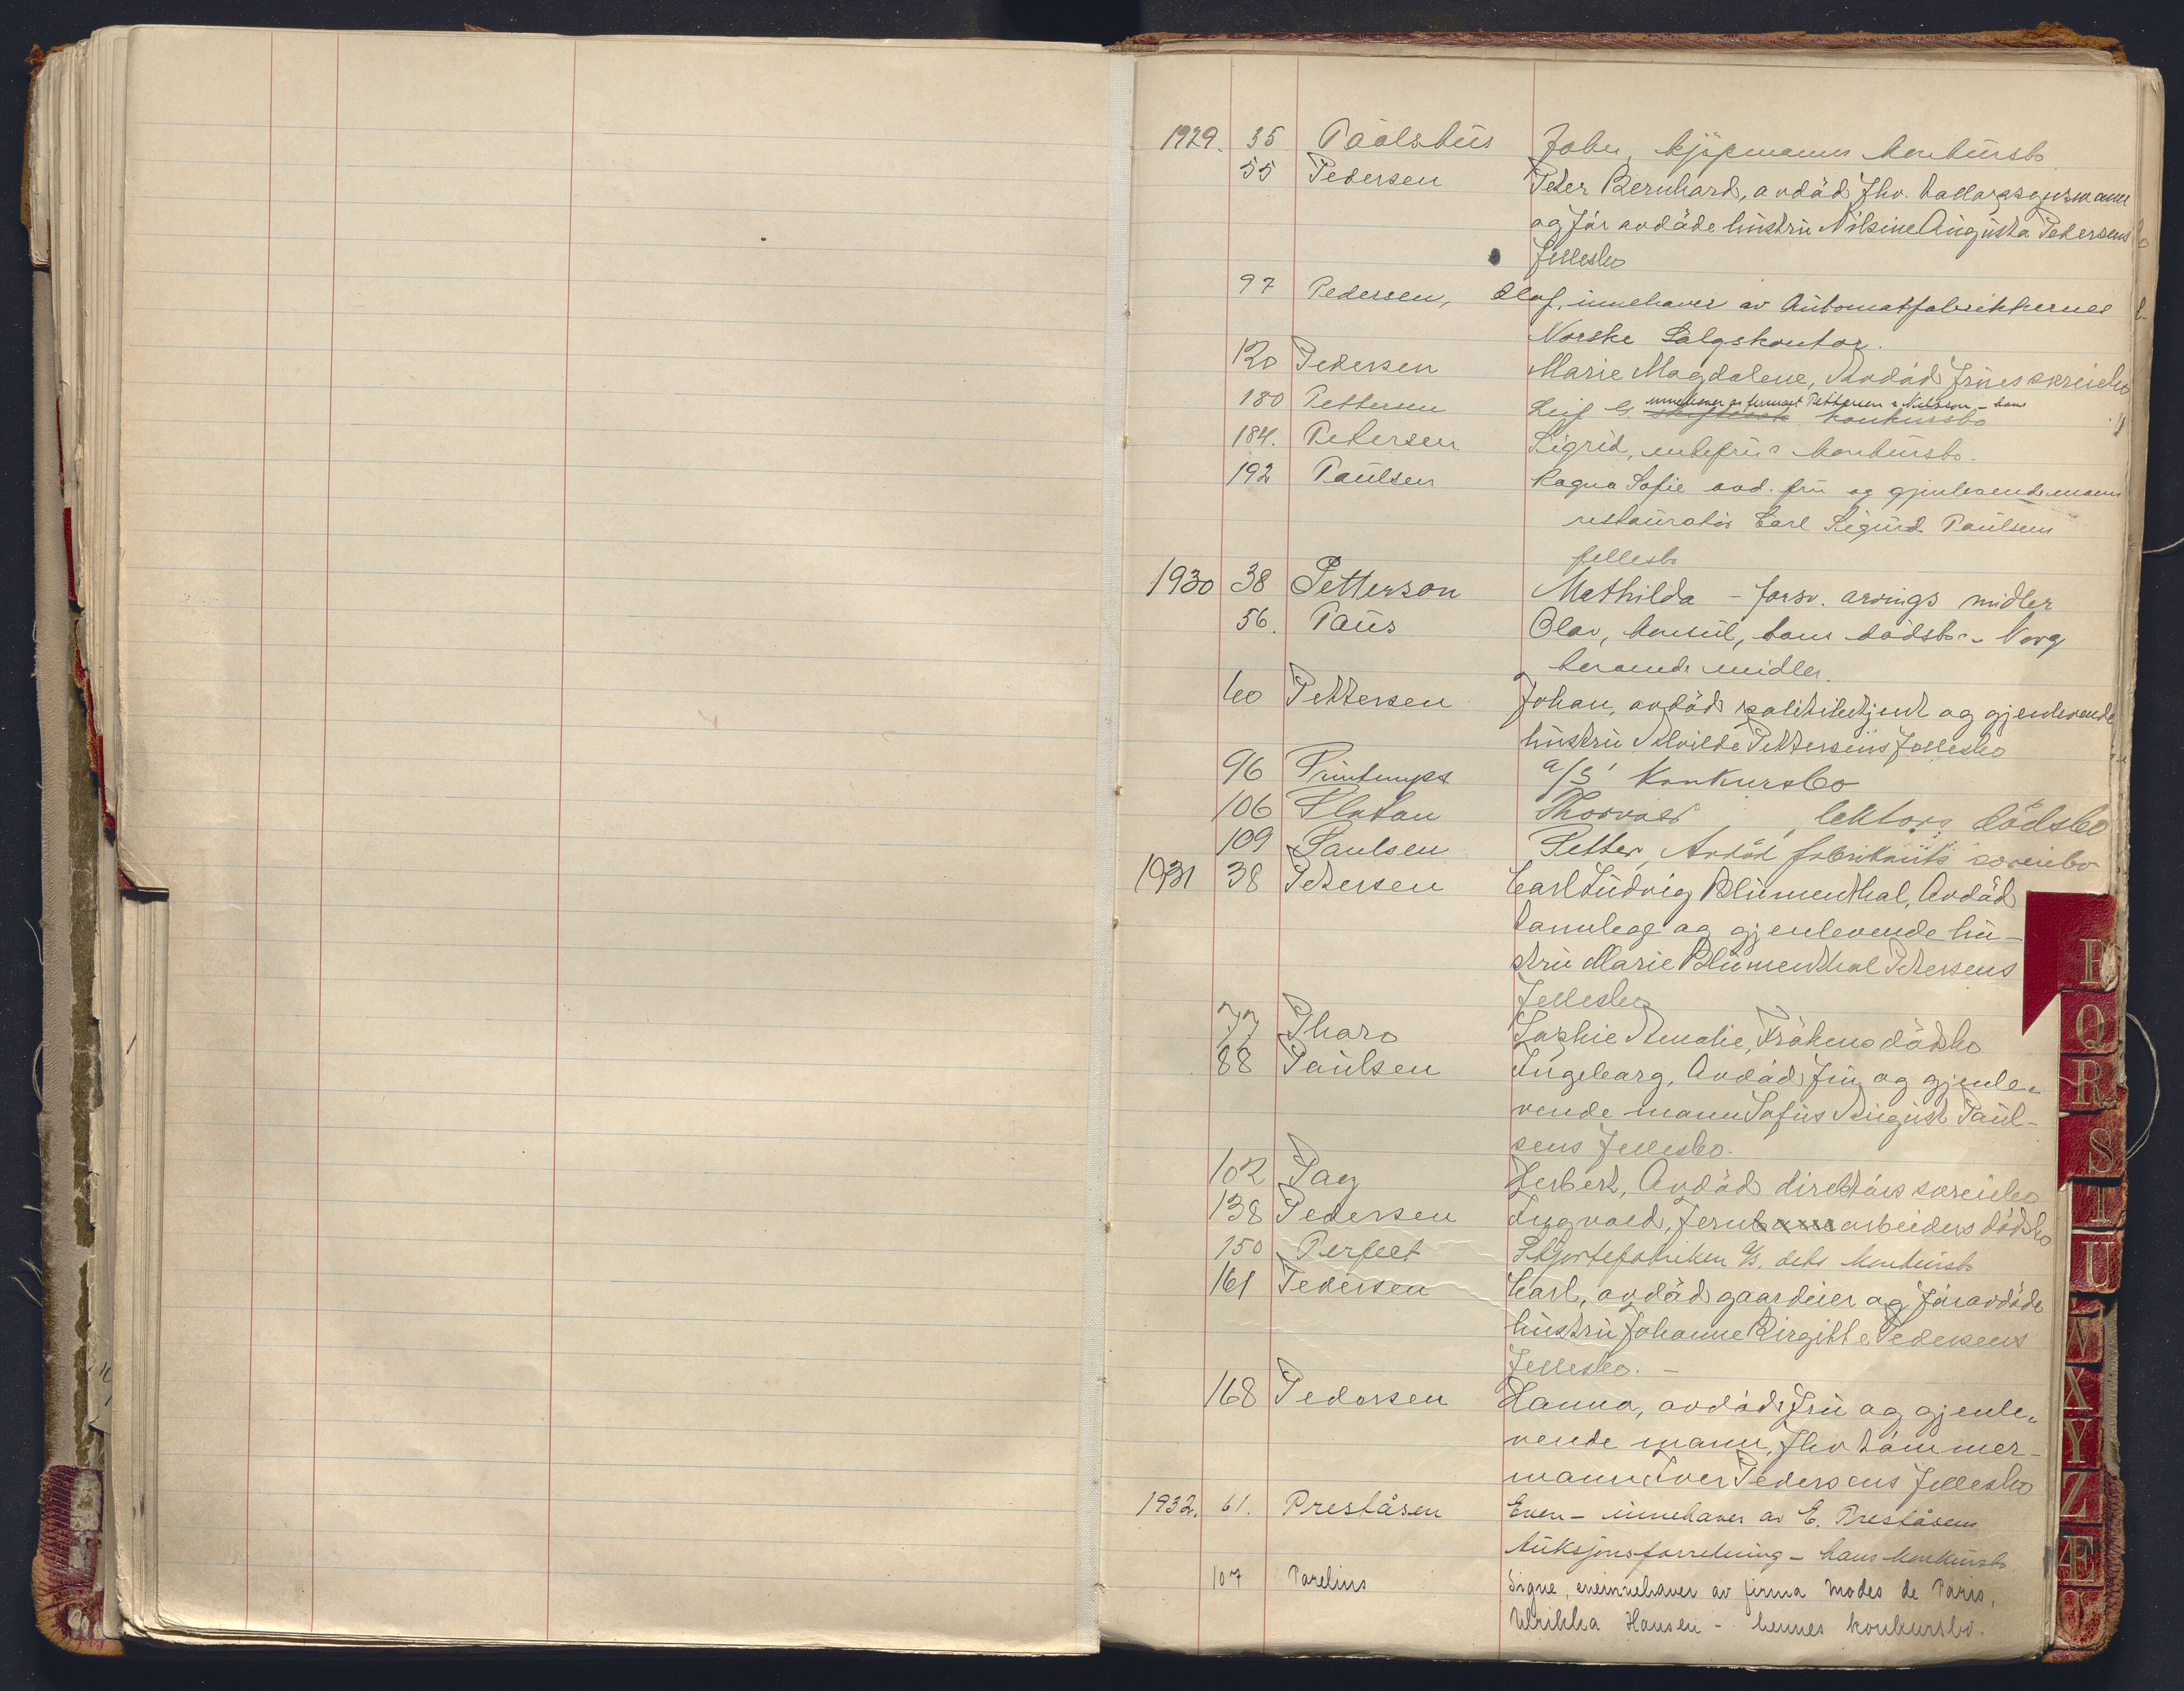 1929. 35 Paalshus John, kjöpmanns konkursbo
55 Pedersen Peder Bernhard, avdöd fhv.
og för avdöde hustru Nilsine Augusta Pedersens
fellesbo
97 Pedersen, Olaf, innehaver av Automatfabrikkernes
Norske Salgskontor.
120 Pedersen Marie Magdalene, Avdöd frues særeiebo
180 Pettersen Leif G. innehaver av firmaet Pettersen & Nielsson - hans konkursbo
184. Petersen Sigrid, enkefru's konkursbo.
192 Paulsen Ragna Sofie avd. fru og gjenlevende mann
restauratör Carl Sigurd Paulsens
fellesbo
1930 38 Petterson Mathilda - forsv. arvings midler
56. Paus Olav, konsul, hans dödsbo - Norg
beroende midler.
60 Pettersen Johan, avdöd politibetjent og gjenlevende
hustru Alvilde Pettersens fellesbo
96 Printemps a/s' Konkursbo
106 Platou Thorvald, lektors dödsbo
109 Paulsen Petter, Avdöd fabrikants særeiebo
1931 38 Petersen Carl Ludvig Blumenthal, Avdöd
tannlege og gjenlevende hu-
stru Marie Blumenthal Petersens
fellesbo
77 Pharo Sophie Amalie, Frökens dödsbo
88 Paulsen Ingeborg, Avdöd fru og gjenle-
vende mann Sofus August Paul-
sens fellesbo.
102 Pay Herbert, Avdöd direktörs særeiebo
138 Pedersen Ingvald, Jernarbeiders dödsbo
150 Perfect Skjortefabriken A/S. dets konkursbo
161 Pedersen Carl, avdöd gaardeier og föravdöde
hustru Johanne Birgitte Pedersens
fellesbo. -
168 Pedersen Hanna, avdöd fru og gjenle-
vende mann, fhv tömmer-
mann Iver Pedersens fellesbo
1932. 61. Preståsen Even - innehaver av E. Preståsens
Auksjonsforretning - hans konkursbo
107 Parelius Signe, eneinnehaver av firma Modes de Paris,
Ulrikka Hansen - hennes konkursbo.
P
Q
R
S
T
U
V
X
Y
Z
Æ
Ö